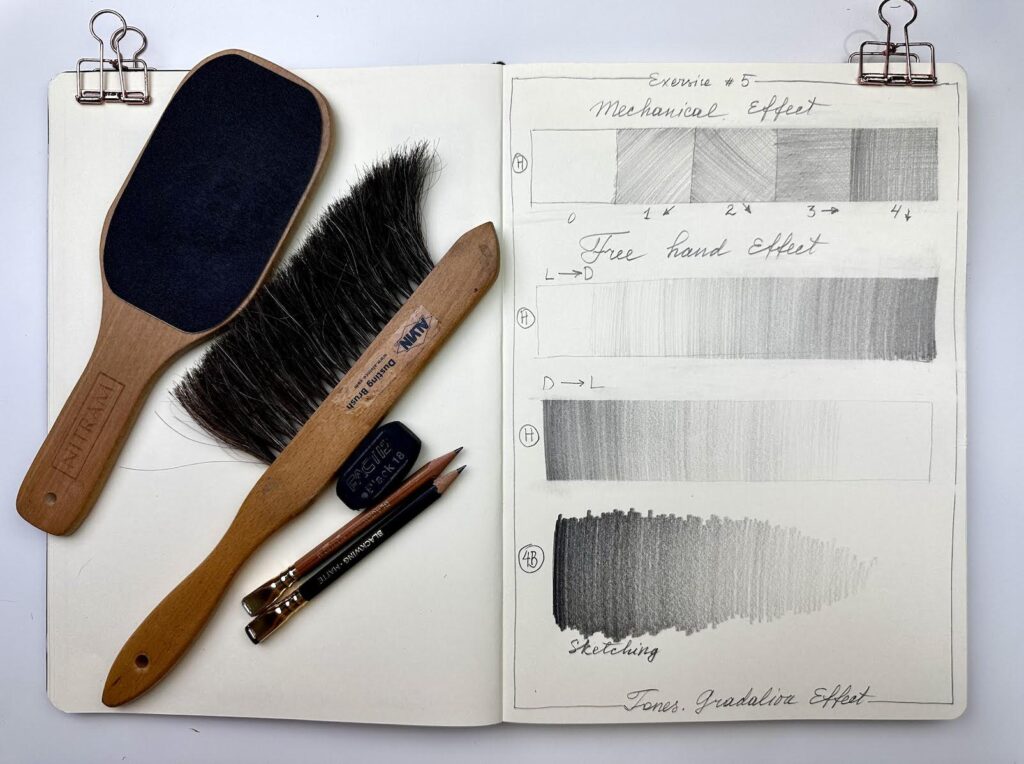 NITRAM
ALVIN
Dusting Brush
FACTIS
Black 18
BLACKWING · MATTE
Exersice # 5
Mechanical Effect
H
0 1 ↙ 2 ↘ 3 → 4 ↓
Free hand Effect
L → D
H
D → L
H
4B
Sketching
Tones. Gradation Effect